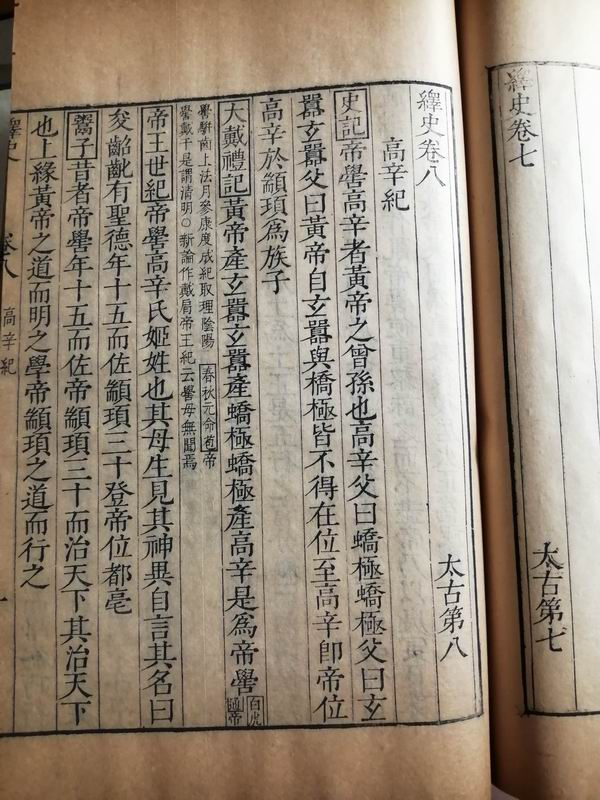 繹史卷七
太古第七
繹史卷八
太古第八
高辛紀
史記帝嚳高辛者黃帝之曾孫也高辛父曰蟜極蟜極父曰玄
囂玄囂父曰黃帝自玄囂與橋極皆不得在位至高辛卽帝位
高辛於顓頊為族子
大戴禮記黃帝產玄囂玄囂產蟜極蟜極產高辛是為帝嚳白虎
通帝
嚳騈齒上法月參康度成紀取理陰陽春秋元命苞帝
嚳戴干是謂清明○新論作戴肩帝王紀云嚳母無聞焉
帝王世紀帝嚳高辛氏姬姓也其母生見其神異自言其名曰
夋齠齔有聖德年十五而佐顓頊三十登帝位都亳
鬻子昔者帝嚳年十五而佐帝顓頊三十而治天下其治天下
也上緣黃帝之道而明之學帝顓頊之道而行之
繹史
卷八
高辛紀
一